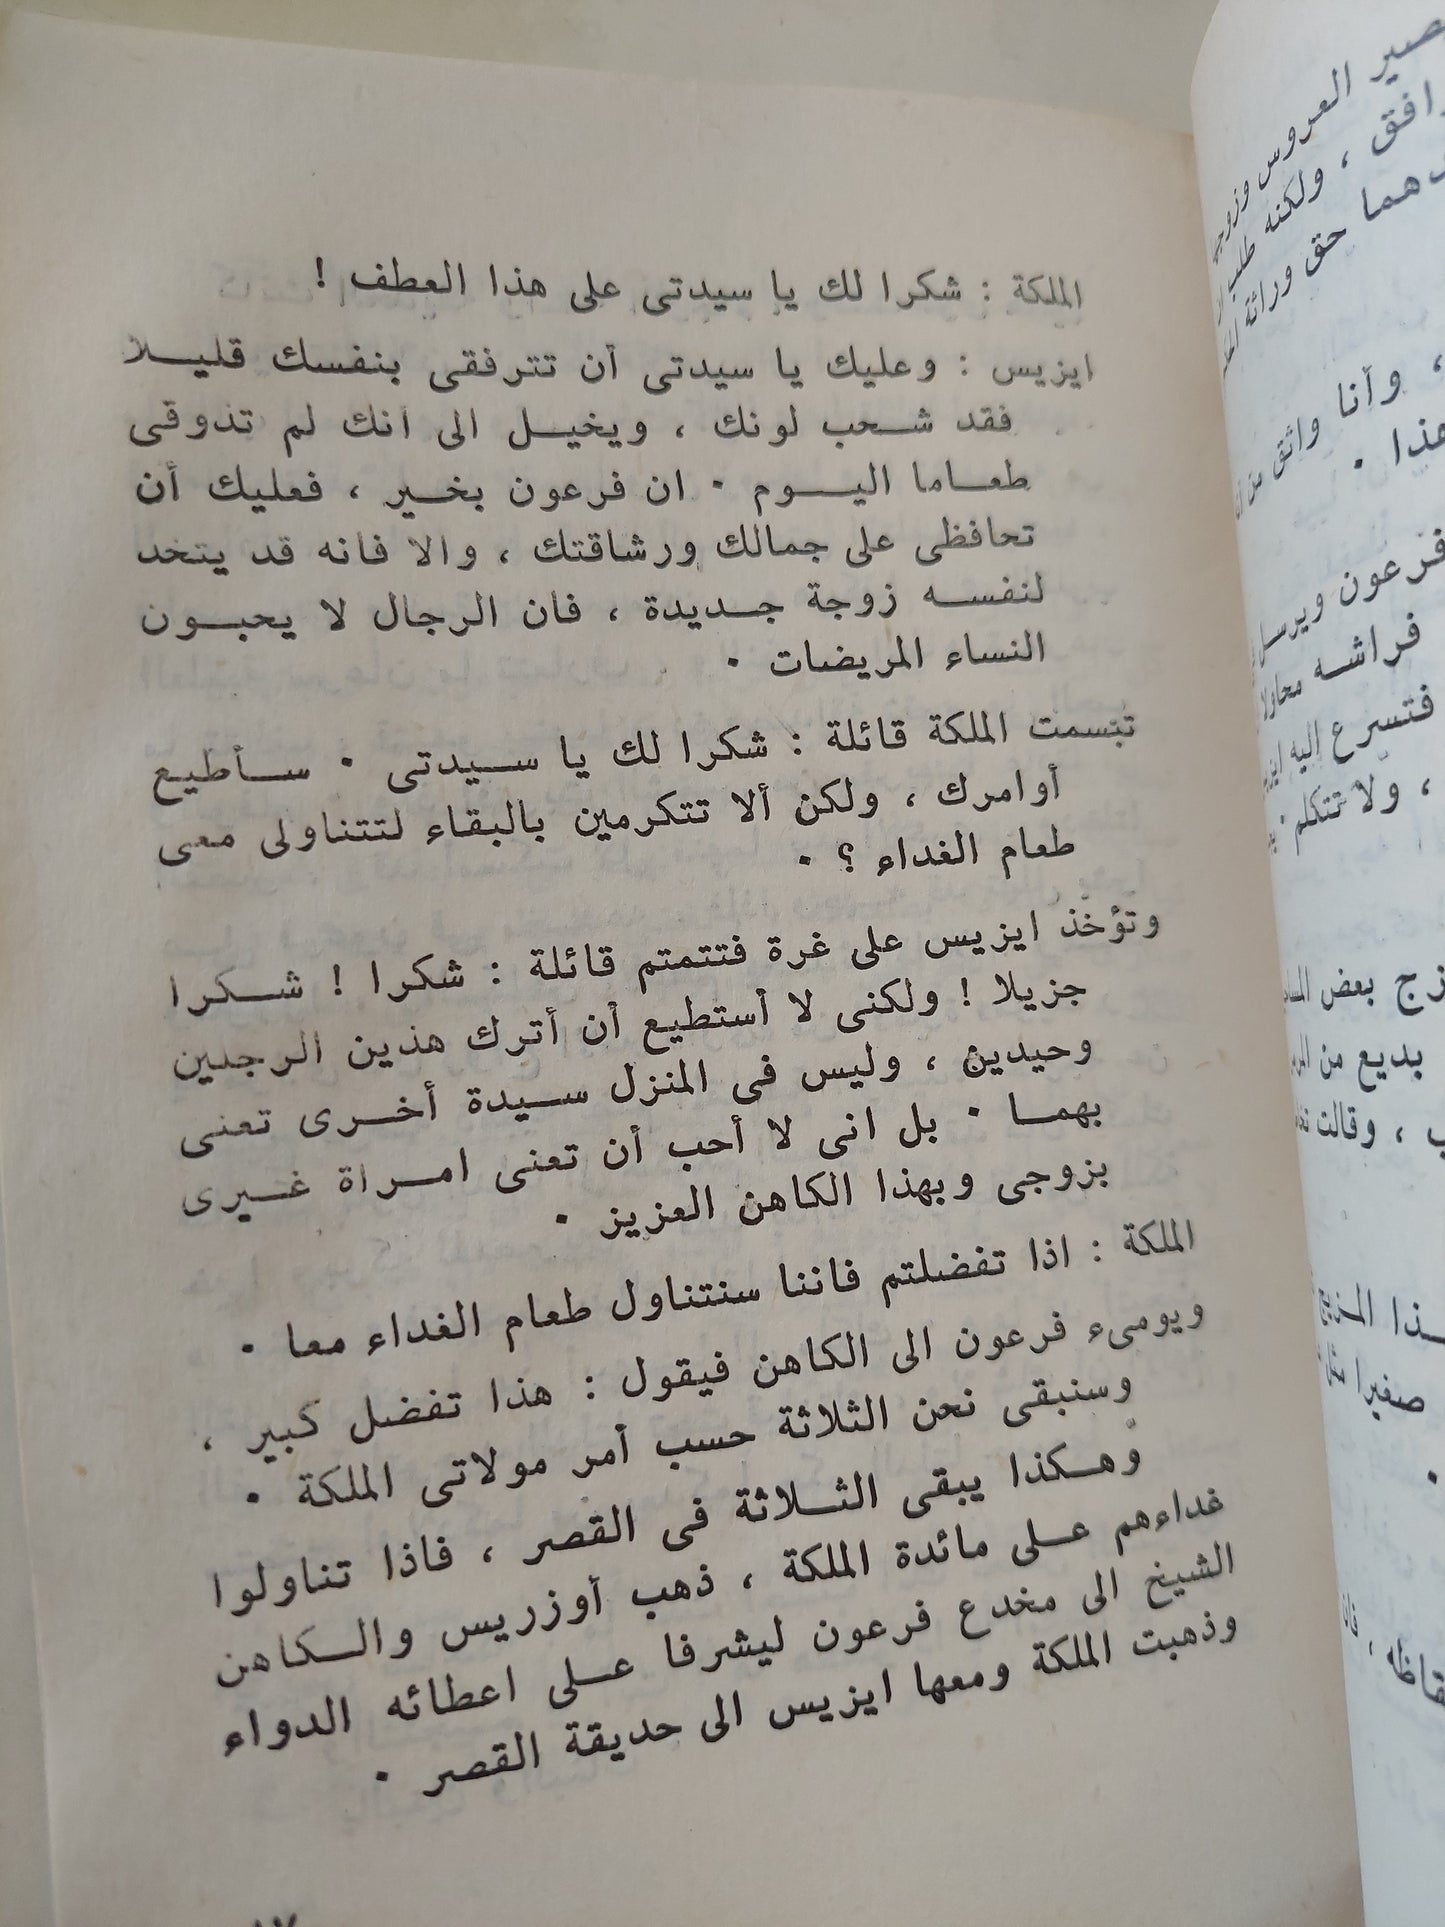 الملكة : شكرا لك يا سيدتى على هذا العطف !
ايزيس : وعليك يا سيدتى أن تترفقى بنفسك قليلا
فقد شحب لونك ، ويخيل الى انك لم تذوقى
طعاما اليوم . ان فرعون بخير ، فعليك أن
تحافظى على جمالك ورشاقتك ، والا فانه قد يتخد
لنفسه زوجة جديدة ، فان الرجال لا يحبون
النساء المريضات .
تبسمت الملكة قائلة : شكرا لك يا سيدتى . سأطيع
أوامرك ، ولكن ألا تتكرمين بالبقاء لتتناولى معى
طعام الغداء ؟ .
وتؤخذ ايزيس على غرة فتتمتم قائلة : شكرا ! شكرا
جزيلا ! ولكنى لا أستطيع أن أترك هذين الرجلين
وحيدين ، وليس فى المنزل سيدة أخرى تعنى
بهما . بل انى لا أحب أن تعنى امرأة غيرى
بزوجى وبهذا الكاهن العزيز .
الملكة : اذا تفضلتم فاننا سنتناول طعام الغداء معا .
ويومىء فرعون الى الكاهن فيقول : هذا تفضل كبير ،
وسنبقى نحن الثلاثة حسب أمر مولاتى الملكة .
وهكذا يبقى الثلاثة فى القصر ، فاذا تناولوا
غداءهم على مائدة الملكة ، ذهب أوزريس والكاهن
الشيخ الى مخدع فرعون ليشرفا على اعطائه الدواء
وذهبت الملكة ومعها ايزيس الى حديقة القصر .
العروس
، ولكنه طلب
حق وراثة
، وأنا واثق من
فرعون ويرسل
فراشه محاولا
فتسرع اليه
، ولا تتكلم
بعض
بديع من
، وقالت
صغيرا